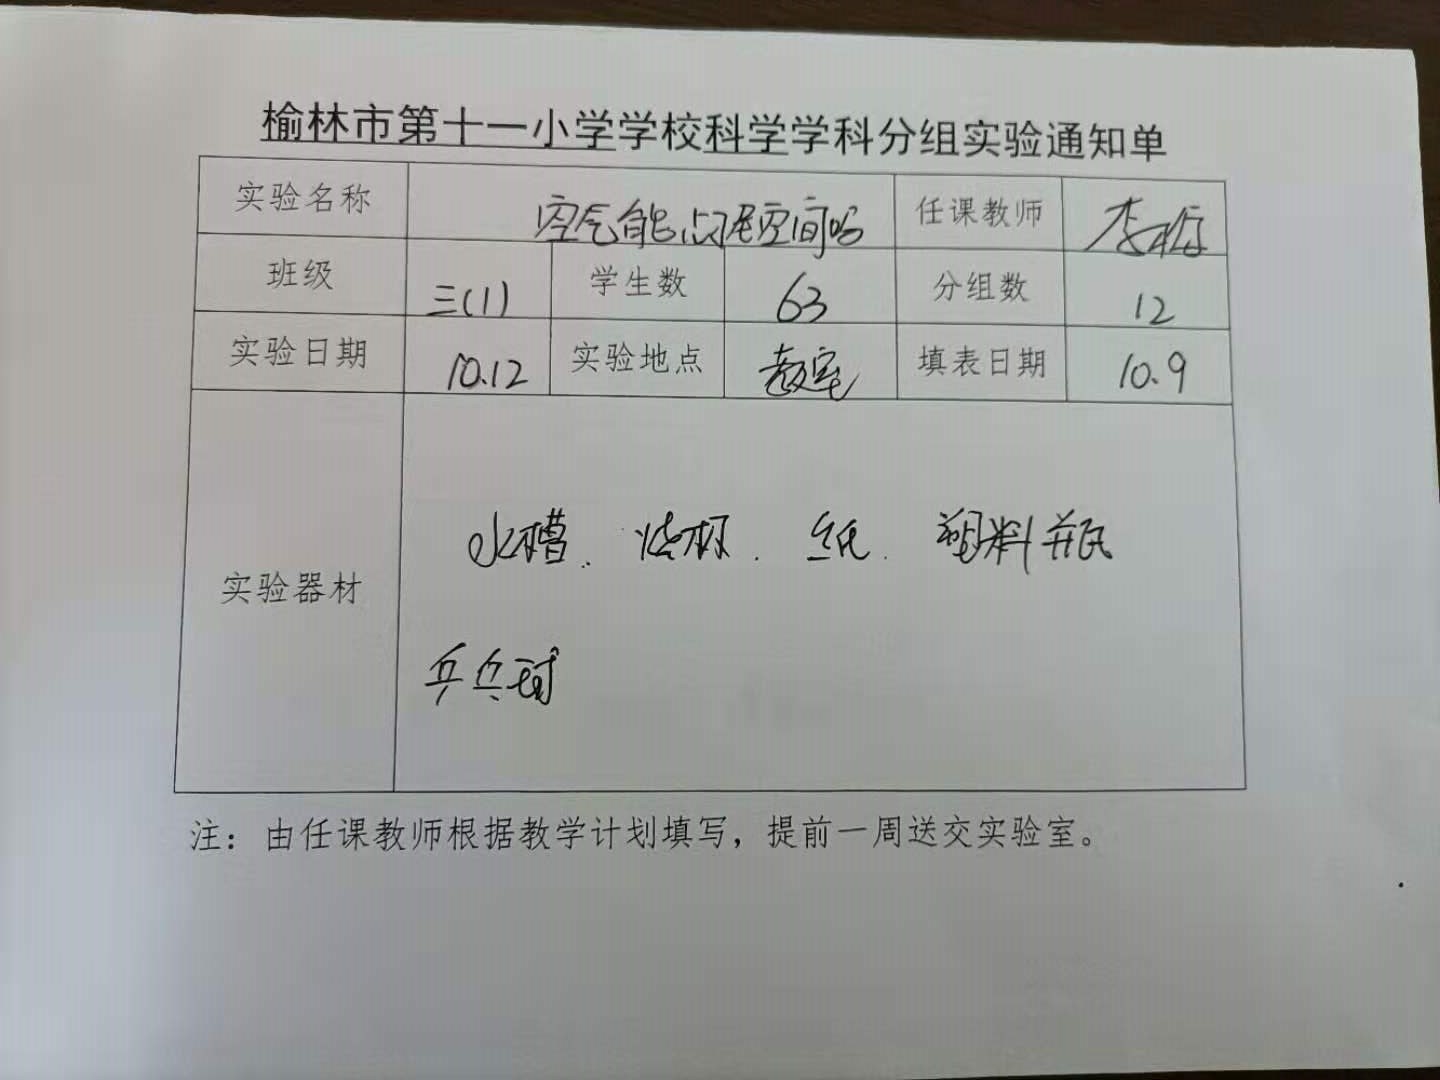 榆林市第十一小学学校科学学科分组实验通知单
实验名称 空气能占据空间吗 任课教师 李
班级 三(1) 学生数 63 分组数 12
实验日期 10.12 实验地点 教室 填表日期 10.9
实验器材 水槽、烧杯、纸、塑料瓶
乒乓球
注：由任课教师根据教学计划填写，提前一周送交实验室。